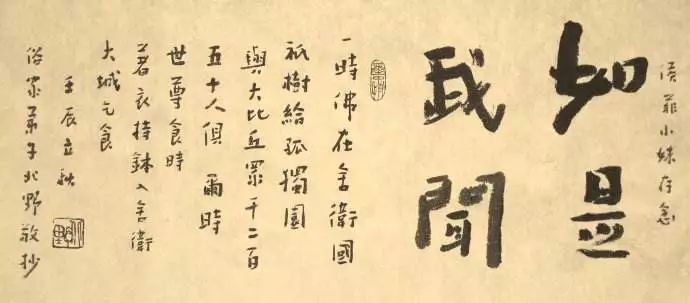 菲小妹存念
如是
我聞
一時佛在舍衛國
祇樹給孤獨園
與大比丘眾千二百
五十人俱 爾時
世尊食時
著衣持鉢入舍衛
大城乞食
壬辰立秋
俗家弟子北野敬抄